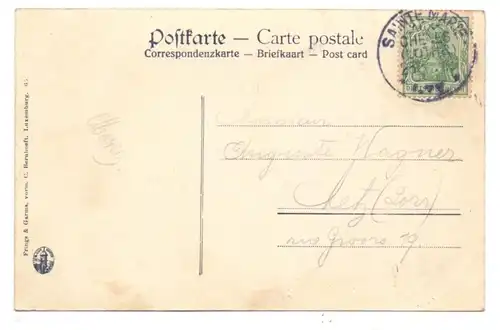 Postkarte – Carte postale
Correspondenzkarte – Briefkaart – Post card
SAINTE MARIE
Monsieur
Auguste Wagner
Metz (Lorr)
rue 19.
Frings & Garma, vorm. C. Bernhoeft, Luxemburg.